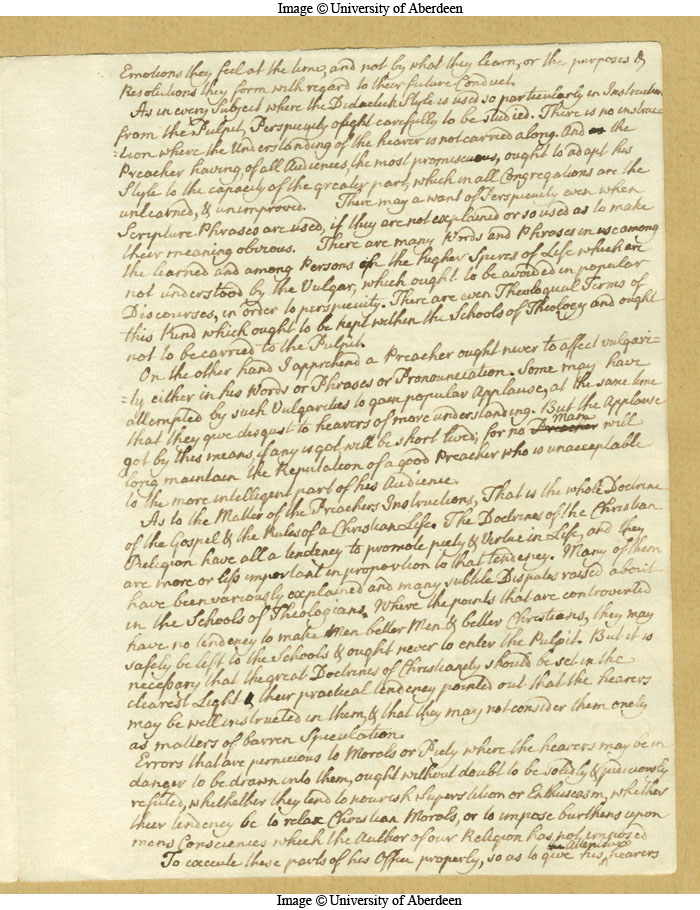 Image © University of Aberdeen
Emotions they feel at the time, and not by what they learn, or the purposes &
Resolutions they form with regard to their future Conduct.
As in every Subject where the Didactick Style is used so particularly in Instruction
from the Pulpit, Perspicuity ought carefully to be studied. There is no instruc=
=tion where the Understanding of the hearer is not carried along. And the
Preacher having, of all Audiences, the most promiscuous, ought to adapt his
Style to the capacity of the greater part, which in all Congregations are the
unlearned, & unimproved. There may a want of Perspicuity even when
Scripture Phrases are used, if they are not explained or so used as to make
their meaning obvious. There are many Words and Phrases in use among
the learned and among Persons in the higher Speres of Life which are
not understood by the Vulgar, which ought to be avoided in popular
Discourses, in order to perspicuity. There are even Theological Terms of
this Kind which ought to be kept within the Schools of Theology and ought
not to be carried to the Pulpit.
On the other hand I apprehend a Preacher ought never to affect vulgari=
=ty either in his Words or Phrases or Pronunciation. Some may have
attempted by such Vulgarities to gain popular Applause, at the same time
that they give disgust to hearers of more understanding. But the Applause
got by this means, if any is got will be short lived; for no Preacher man will
long maintain the Reputation of a good Preacher who is unacceptable
to the more intelligent part of his Audience.
As to the Matter of the Preachers Instructions, That is the whole Doctrine
of the Gospel & the Rules of a Christian Life. The Doctrines of the Christian
Religion have all a tendency to promote piety & Virtue in Life, and they
are more or less important in proportion to that tendency. Many of them
have been variously explained and many subtile Disputes raised about
in the Schools of Theologians. Where the points that are controverted
have no tendency to make Men better Men & better Christians, they may
safely be left to the Schools & ought never to enter the Pulpit. But it is
necessary that the great Doctrines of Christianity should be set in the
clearest Light & their practical tendency pointed out that the hearers
may be well instructed in them, & that they may not consider them onely
as matters of barren Speculation.
Errors that are pernicious to Morals or Piety where the hearers may be in
danger to be drawn into them, ought without doubt to be solidly & judiciously
refuted, whethather they tend to nourish Superstition or Enthusiasm, whether
their tendency be to relax Christian Morals, or to impose burthens upon
mens Consciences which the Author of our Religion has not imposed
To execute these parts of his Office properly, so as to give his attentive hearers
Image © University of Aberdeen